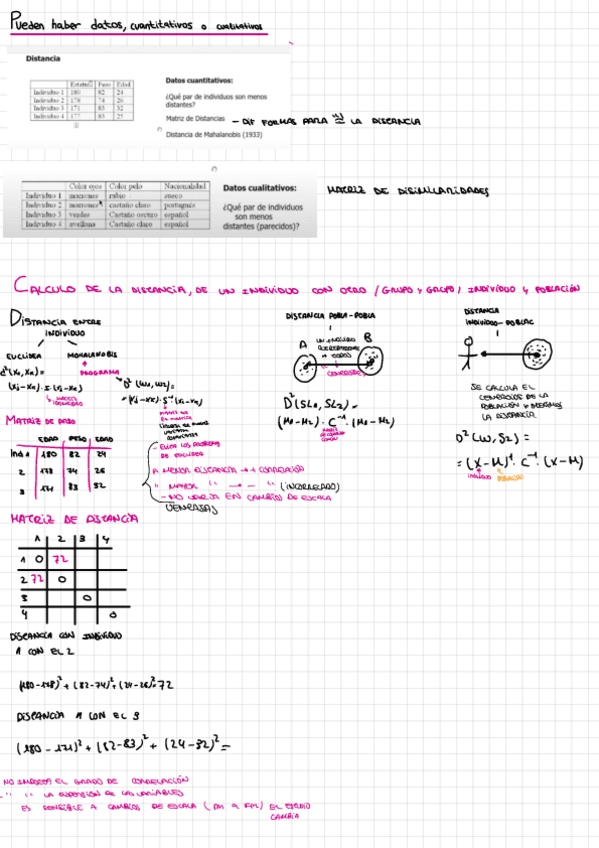 Pueden haber datos, cuantitativos o cualitativos
Distancia
Estatura Peso Edad
Individuo 1 180 82 24
Individuo 2 178 74 26
Individuo 3 171 83 32
Individuo 4 177 83 25
Datos cuantitativos:
¿Qué par de individuos son menos
distantes?
Matriz de Distancias
Distancia de Mahalanobis (1933)
- DIF FORMAS PARA LA DISTANCIA
Color ojos Color pelo Nacionalidad
Individuo 1 marrones rubio sueco
Individuo 2 marrones castaño claro portugués
Individuo 3 verdes Castaño oscuro español
Individuo 4 avellana Castaño claro español
Datos cualitativos:
¿Qué par de individuos
son menos
distantes (parecidos)?
MATRIZ DE DISIMILARIDADES
CALCULO DE LA DISTANCIA, DE UN INDIVIDUO CON OTRO / GRUPO Y GRUPO / INDIVIDUO Y POBLACIÓN
DISTANCIA ENTRE
INDIVIDUO
EUCLIDEA MAHALANOBIS
PROGRAMA
MATRIZ
IDENTIDAD
DISTANCIA POBLA-POBLA
A B
UN INDIVIDUO
CENTROIDES
DISTANCIA
INDIVIDUO-POBLAC
SE CALCULA EL
CENTROIDE DE LA
POBLACIÓN Y
LA DISTANCIA
= (X-M)'. C⁻¹. (X-M)
INDIVIDUO POBLACION
MATRIZ DE DATO
EDAD PESO EDAD
Ind 1 180 82 24
2 178 74 26
3 171 83 32
- EVITA LOS PROBLEMAS
DE EUCLIDEA
A MENOR DISTANCIA → + CORRELACIÓN
" MAYOR " → - " (INCORRELADO)
- NO VARIA EN CAMBIOS DE ESCALA
VENTAJAS
MATRIZ DE DISTANCIA
1 2 3 4
1 0 72
2 72 0
3 0
4 0
DISTANCIA CON INDIVIDUO
1 CON EL 2
(180-178)² + (82-74)² + (24-26)² = 72
DISTANCIA 1 CON EL 3
(180-171)² + (82-83)² + (24-32)² =
NO IMPORTA EL GRADO DE CORRELACIÓN
" " LA DISPERSIÓN DE LAS VARIABLES
ES SENSIBLE A CAMBIOS DE ESCALA EL ESTUDIO
CAMBIA